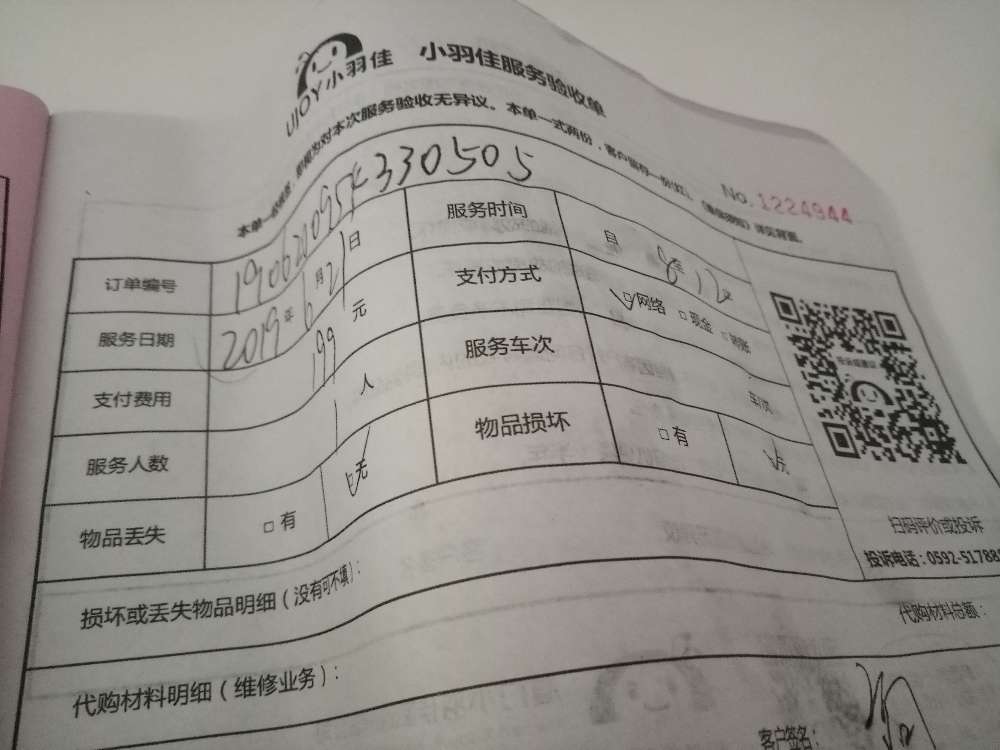 UJOY小羽佳 小羽佳服务验收单
对本次服务验收无异议。本单一式两份，客户留存一份
No.1224944
订单编号
服务日期 2019年6月21日 服务时间
支付费用 199元 支付方式 网络 □现金 □转账
服务人数 1人 服务车次 车次
物品丢失 □有 无 物品损坏 □有
扫码评价或投诉
投诉电话：0592-51788
损坏或丢失物品明细（没有可不填）：
代购材料明细（维修业务）： 代购材料总额：
客户签名：